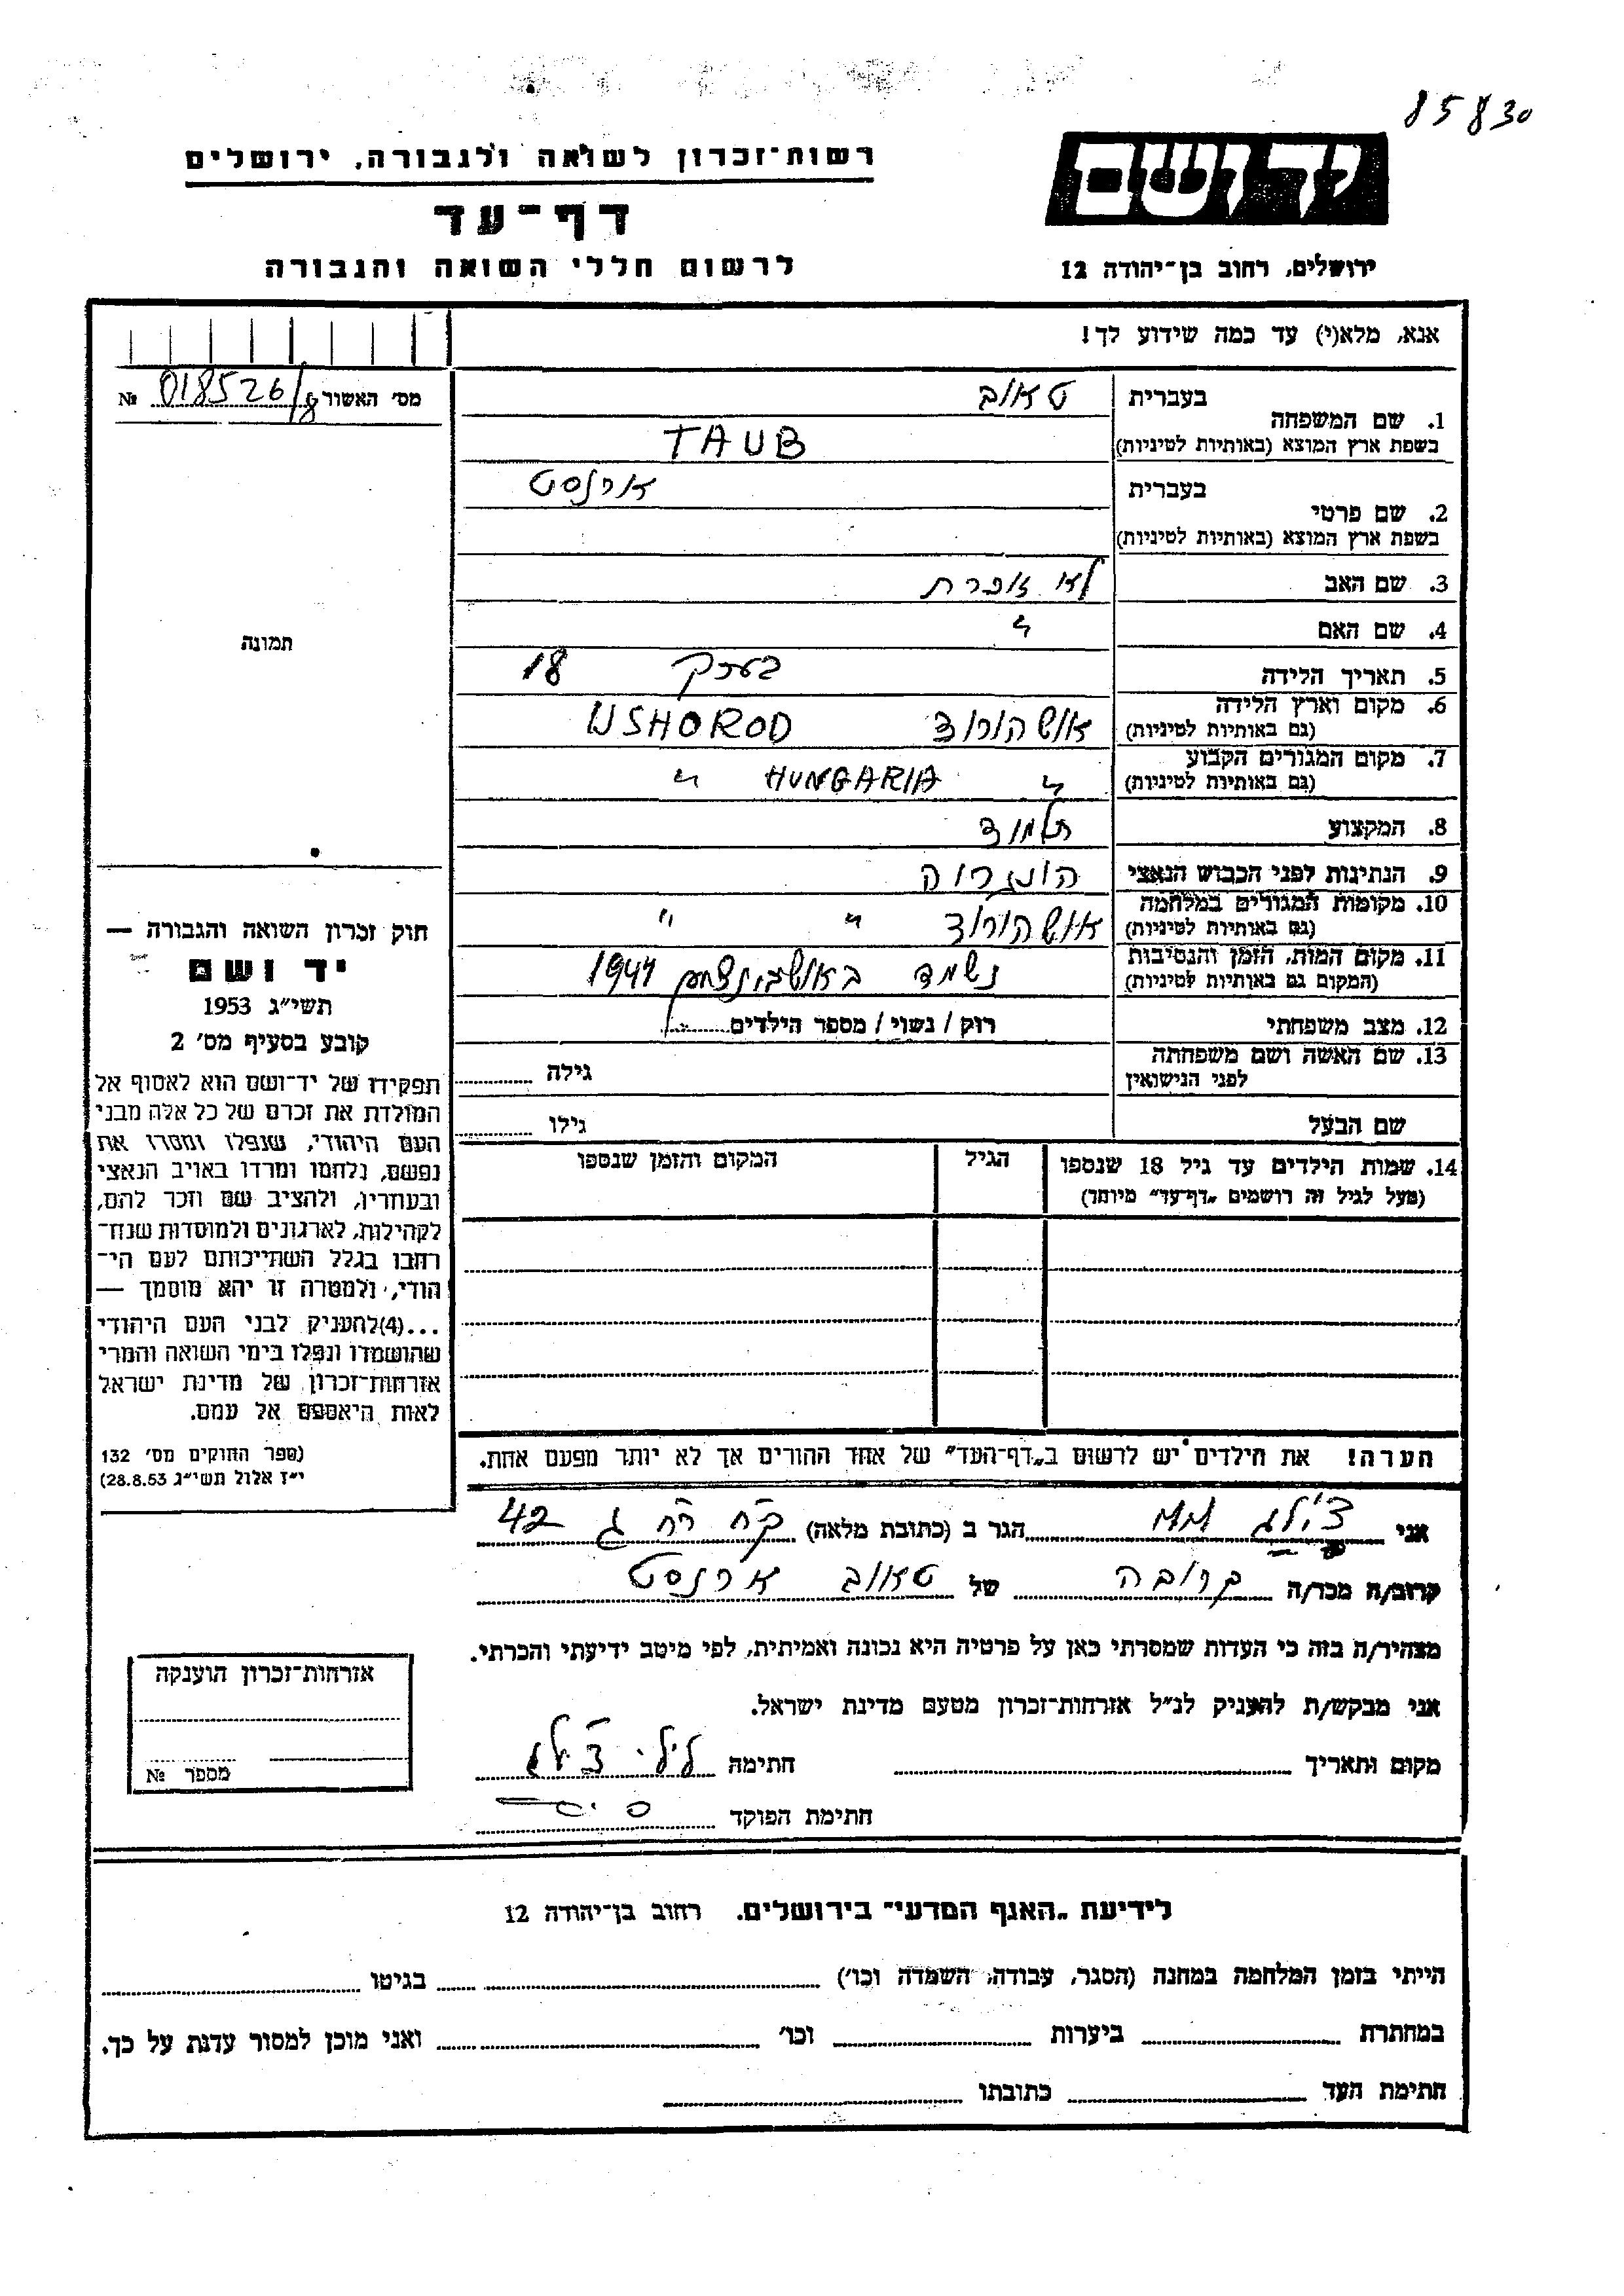 85830
יד ושם
רשות־זכרון לשואה ולגבורה, ירושלים
דף־עד
לרשום חללי השואה והגבורה
ירושלים, רחוב בן־יהודה 12
אנא, מלא(י) עד כמה שידוע לך!
מס׳ האשור 018526/8 №
תמונה
1. שם המשפחה
בעברית טאוב
בשפת ארץ המוצא (באותיות לטיניות) TAUB
2. שם פרטי
בעברית ארנסט
בשפת ארץ המוצא (באותיות לטיניות)
3. שם האב לא זוכרת
4. שם האם "
5. תאריך הלידה בערך 18
6. מקום וארץ הלידה אושהורוד USHOROD
(גם באותיות לטיניות)
7. מקום המגורים הקבוע " HUNGARIA "
(גם באותיות לטיניות)
8. המקצוע תלמוד
9. הנתינות לפני הכבוש הנאצי הונגריה
10. מקומות המגורים במלחמה אושהורוד " "
(גם באותיות לטיניות)
11. מקום המות, הזמן והנסיבות נשמד באושביץ 1944
(המקום גם באותיות לטיניות)
12. מצב משפחתי רוק / נשוי / מספר הילדים
13. שם האשה ושם משפחתה
לפני הנישואין גילה
שם הבעל גילו
14. שמות הילדים עד גיל 18 שנספו הגיל המקום והזמן שנספו
(מעל לגיל זה רושמים „דף־עד״ מיוחד)
חוק זכרון השואה והגבורה —
יד ושם
תשי״ג 1953
קובע בסעיף מס׳ 2
תפקידו של יד־ושם הוא לאסוף אל
המולדת את זכרם של כל אלה מבני
העם היהודי, שנפלו ומסרו את
נפשם, נלחמו ומרדו באויב הנאצי
ובעוזריו, ולהציב שם וזכר להם,
לקהילות, לארגונים ולמוסדות שנח־
רחבו בגלל השתייכותם לעם הי־
הודי, ולמטרה זו יהא מוסמך —
...(4)להעניק לבני העם היהודי
שהושמדו ונפלו בימי השואה והמרי
אזרחות־זכרון של מדינת ישראל
לאות היאספם אל עמם.
(ספר החוקים מס׳ 132
י״ז אלול תשי״ג 28.8.53)
הערה! את הילדים יש לרשום ב„דף־העד״ של אחד ההורים אך לא יותר מפעם אחת.
אני הגר ב (כתובת מלאה) 42
קרוב/ה מכר/ה קרובה של טאוב ארנסט
מצהיר/ה בזה כי העדות שמסרתי כאן על פרטיה היא נכונה ואמיתית, לפי מיטב ידיעתי והכרתי.
אני מבקש/ת להעניק לנ״ל אזרחות־זכרון מטעם מדינת ישראל.
מקום ותאריך חתימה לילי
חתימת הפוקד
אזרחות־זכרון הוענקה
מספר №
לידיעת „האגף המדעי״ בירושלים. רחוב בן־יהודה 12
הייתי בזמן המלחמה במחנה (הסגר, עבודה, השמדה וכו׳) בגיטו
במחתרת ביערות וכו׳ ואני מוכן למסור עדות על כך.
חתימת העד כתובתו